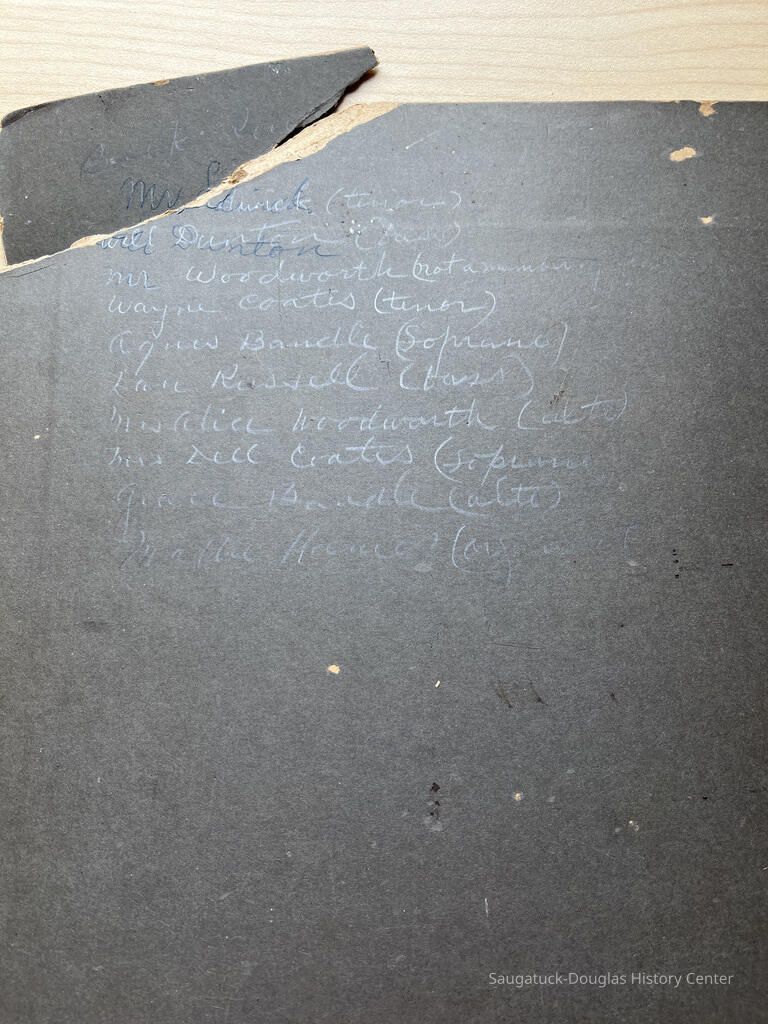 Back
Mr. (tenor)
Will Dunton (bass)
Mr Woodworth (not a
Wayne Coates (tenor)
Agnes Bandle (Soprano)
Russell (bass)
Mrs Alice Woodworth (alto)
Mrs Dell Coates (Soprano)
Grace Bandle (alto)
(organist
Saugatuck-Douglas History Center